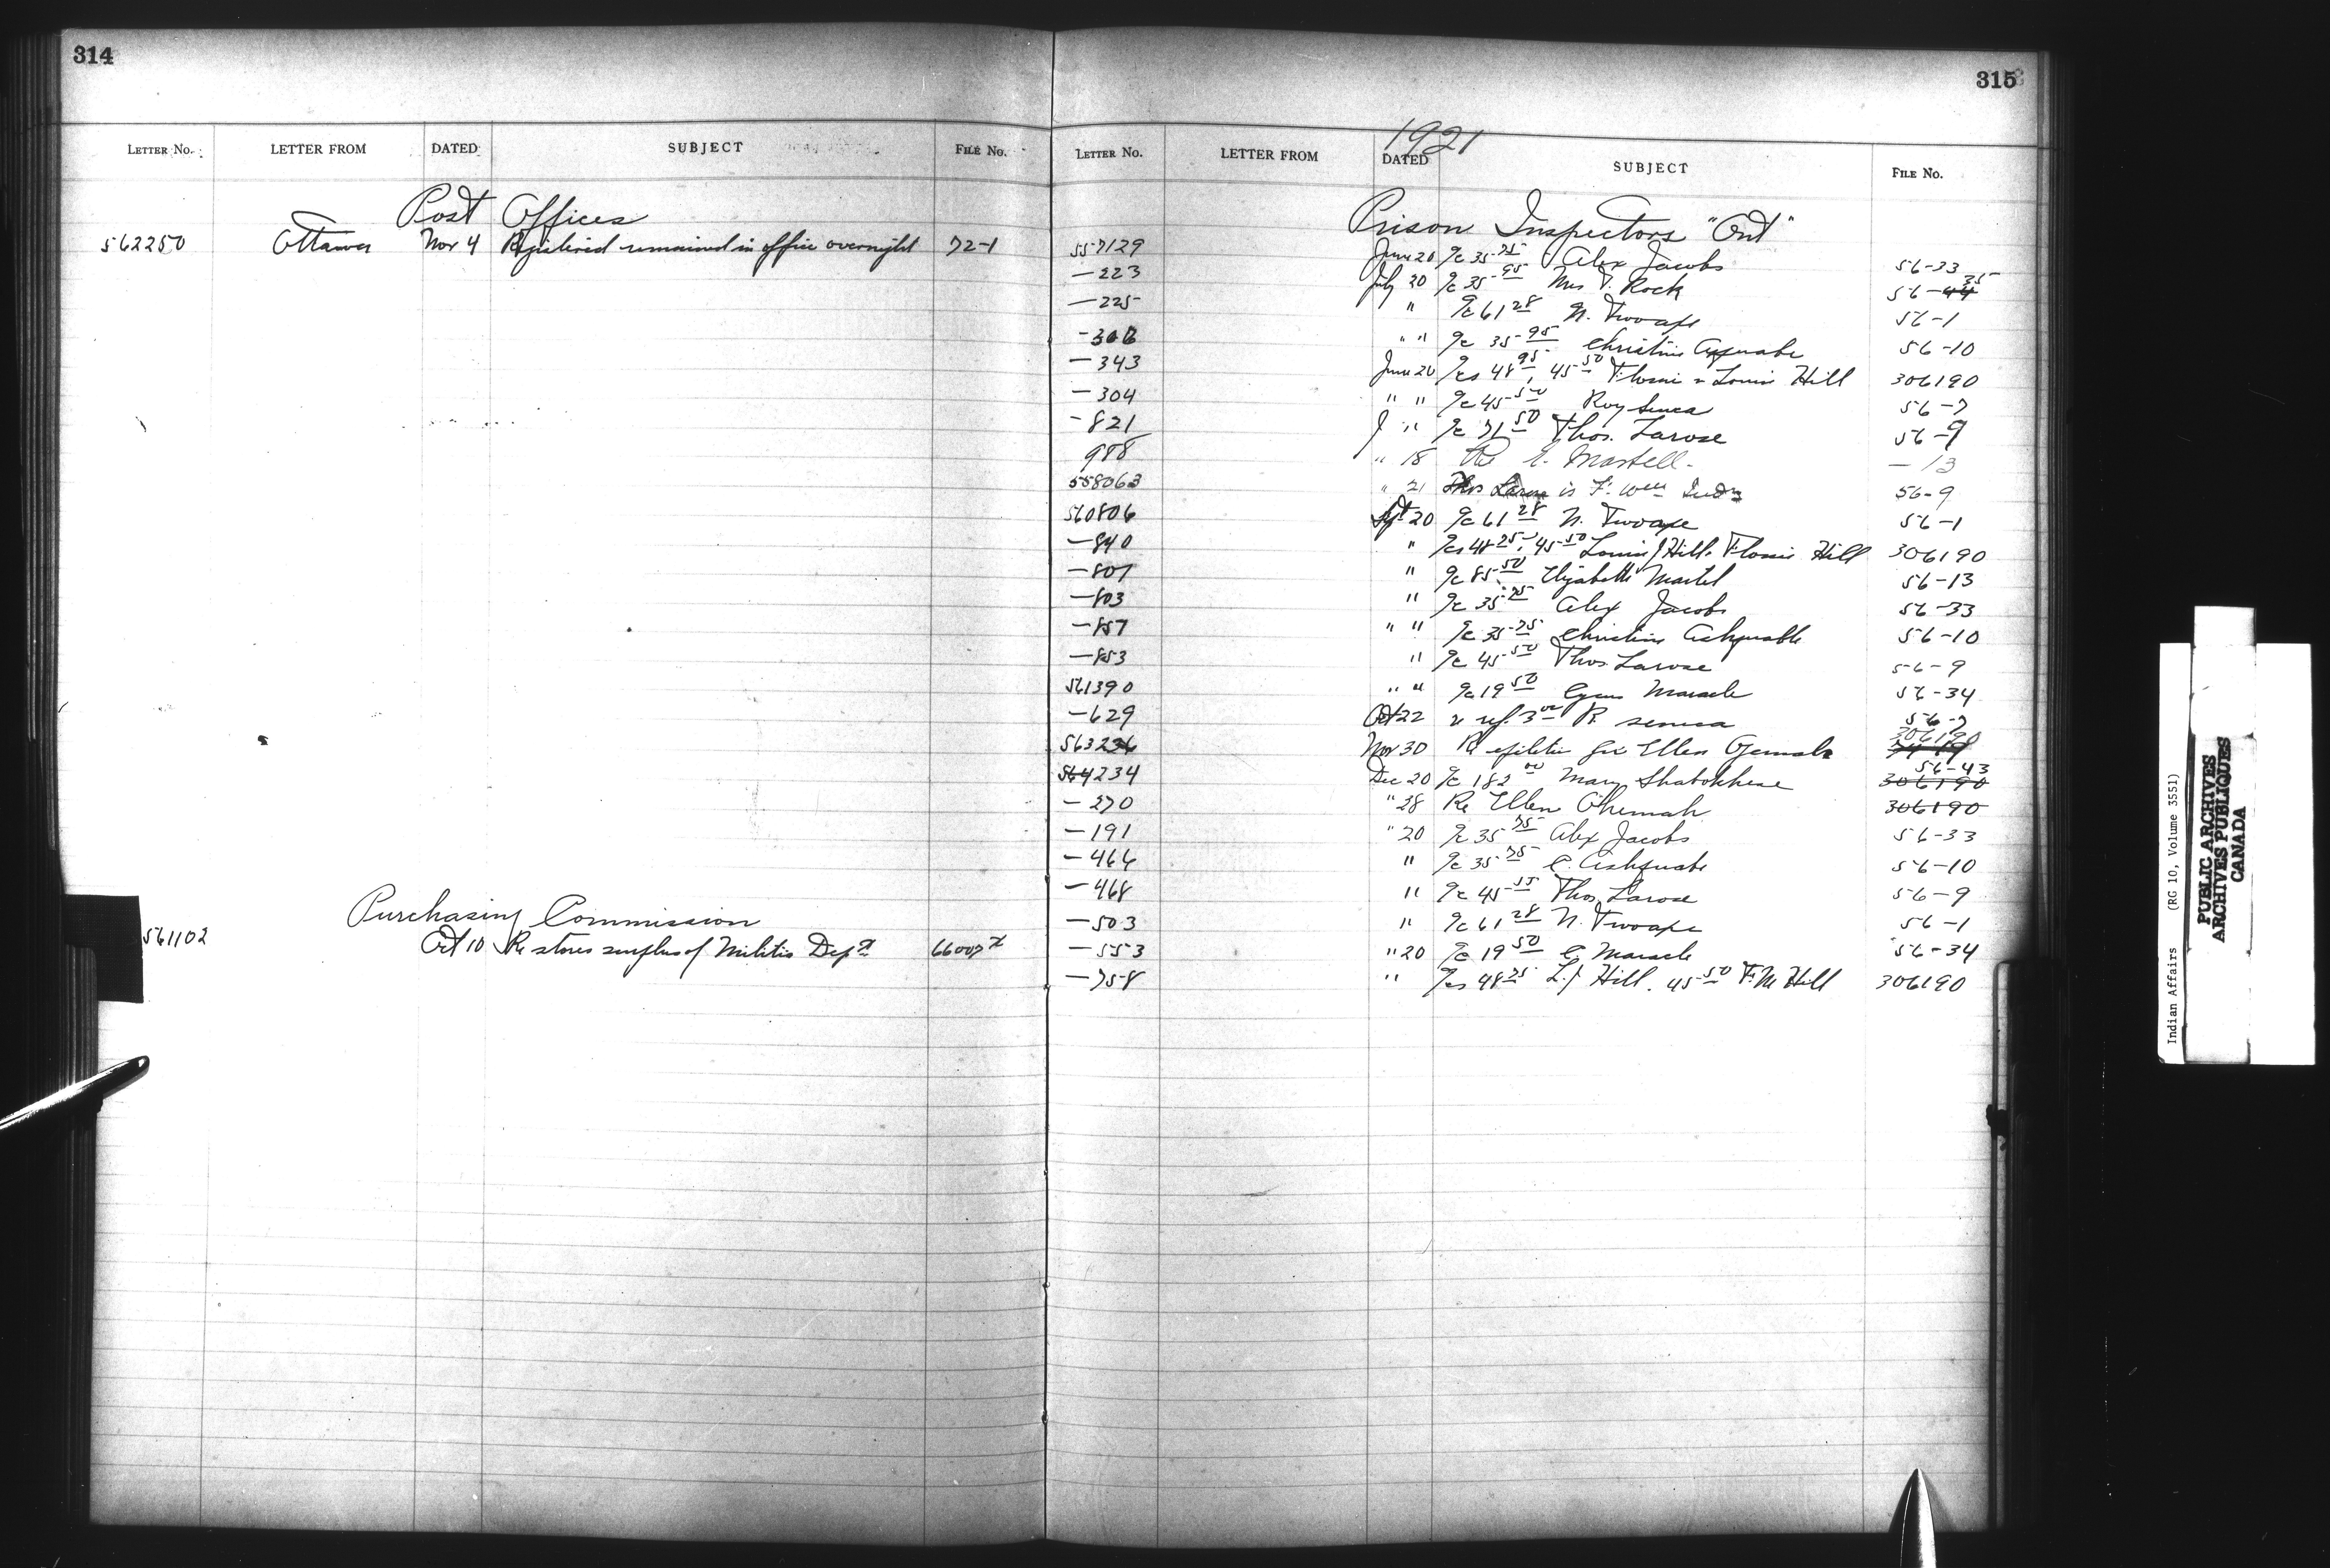 314
LETTER NO. LETTER FROM DATED SUBJECT FILE NO.
Post Offices
562250 Ottawa Nov 4 Registered remained in office overnight 72-1
Purchasing Commission
561102 Oct 10 Re stores surplus of Militia Dept
315
1921
LETTER NO. LETTER FROM DATED SUBJECT FILE NO.
Prison Inspectors "Ont"
557129 June 20 a/c 35 75 Alex Jacobs 56-33
—223 July 20 a/c 35 95 Mrs T. Rock 56-44 35
—225 " a/c 61 28 N. Twoaxe 56-1
" " a/c 35 95 Christine 56-10
—343 June 20 a/cs 48 95, 45 50 Flossie & Louis Hill 306190
—304 " " a/c 45 50 Roy Seneca 56-7
-821 " a/c 71 50 Thos. Larose 56-9
988 " 18 Re E. Martell. — 13
558063 " 21 Thos Larose is Ft. Wm Indn 56-9
560806 Spt 20 a/c 61 28 N. Twoaxe 56-1
—840 " a/cs 48 25, 45 50 Louis J Hill. Flossie Hill 306190
—807 " a/c 85 50 Elizabeth Martel 56-13
—803 " a/c 35 75 Alex Jacobs 56-33
—857 " " a/c 35 75 Christine Ashquabe 56-10
—853 " a/c 45 50 Thos. Larose 56-9
561390 " " a/c 19 50 Cyrus Maracle 56-34
—629 Oct 22 ref. 3 R. Seneca 56-7
563236 Nov 30 Re Ellen 306190 74-19
564234 Dec 20 a/c 182 00 Mary 56-43 306190
—270 " 28 Re Ellen 306190
—191 " 20 a/c 35 75 Alex Jacobs 56-33
—466 " a/c 35 75 C. Ashquabe 56-10
—468 " a/c 45 55 Thos Larose 56-9
—503 " a/c 61 28 N. Twoaxe 56-1
—553 " 20 a/c 19 50 C. Maracle 56-34
—758 " a/cs 48 75 L.J Hill. 45 50 F.M Hill 306190
Indian Affairs (RG 10, Volume 3551)
PUBLIC ARCHIVES
ARCHIVES PUBLIQUES
CANADA